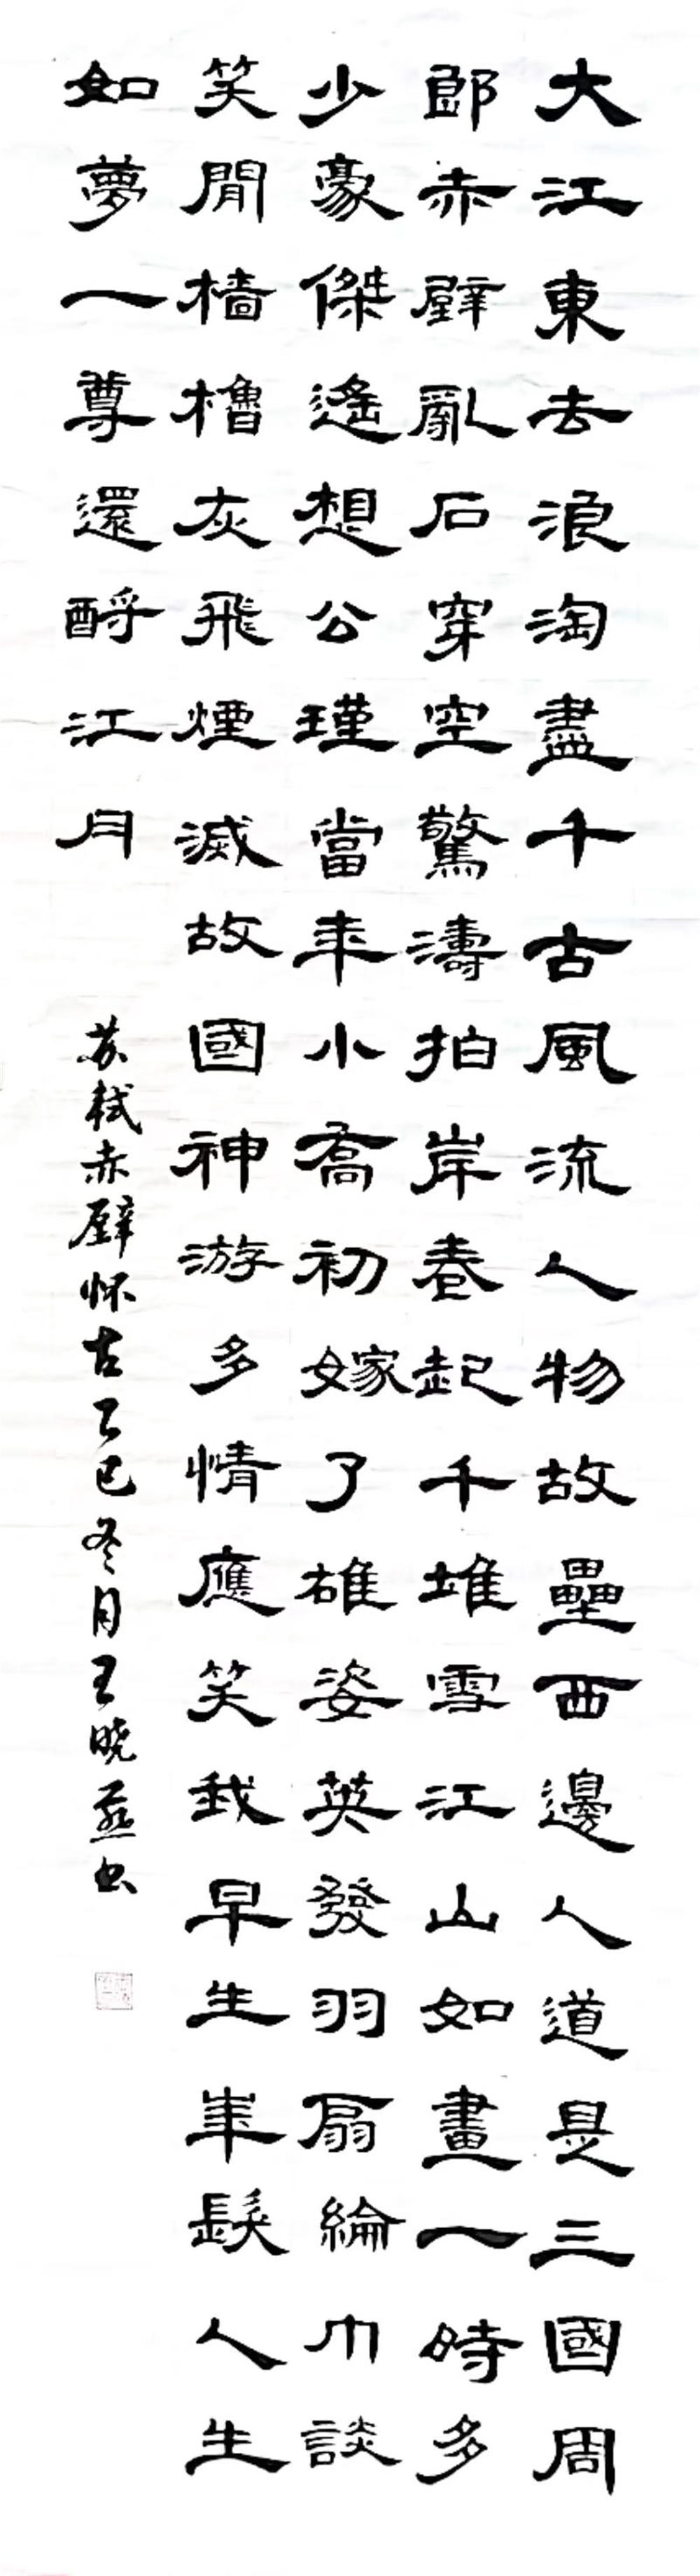 大江東去浪淘盡千古風流人物故壘西邊人道是三國周
郎赤壁亂石穿空驚濤拍岸卷起千堆雪江山如畫一時多
少豪傑遙想公瑾當年小喬初嫁了雄姿英發羽扇綸巾談
笑閒檣櫓灰飛煙滅故國神游多情應笑我早生華髮人生
如夢一尊還酹江月
苏轼赤壁怀古乙巳冬月王晓燕书